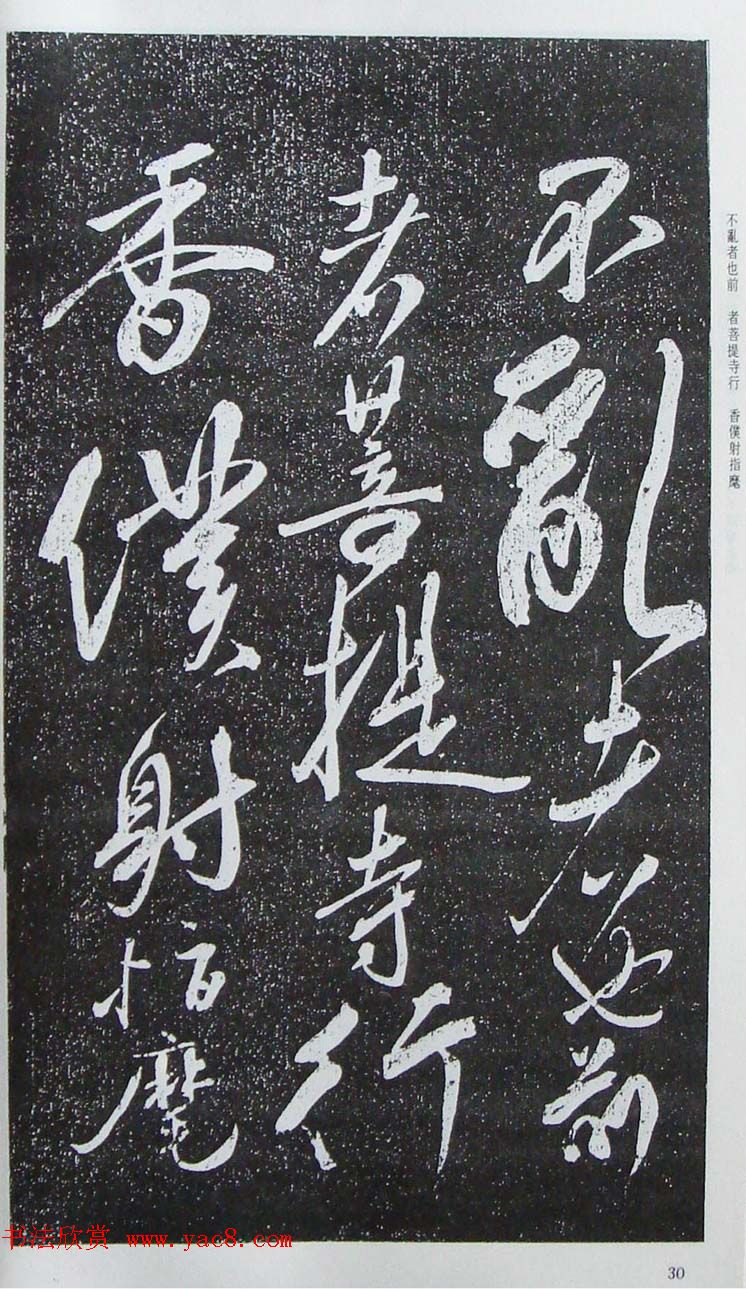 不亂者也前
者菩提寺行
香僕射指麾
不亂者也前　者菩提寺行　香僕射指麾
书法欣赏 www.yac8.com
30